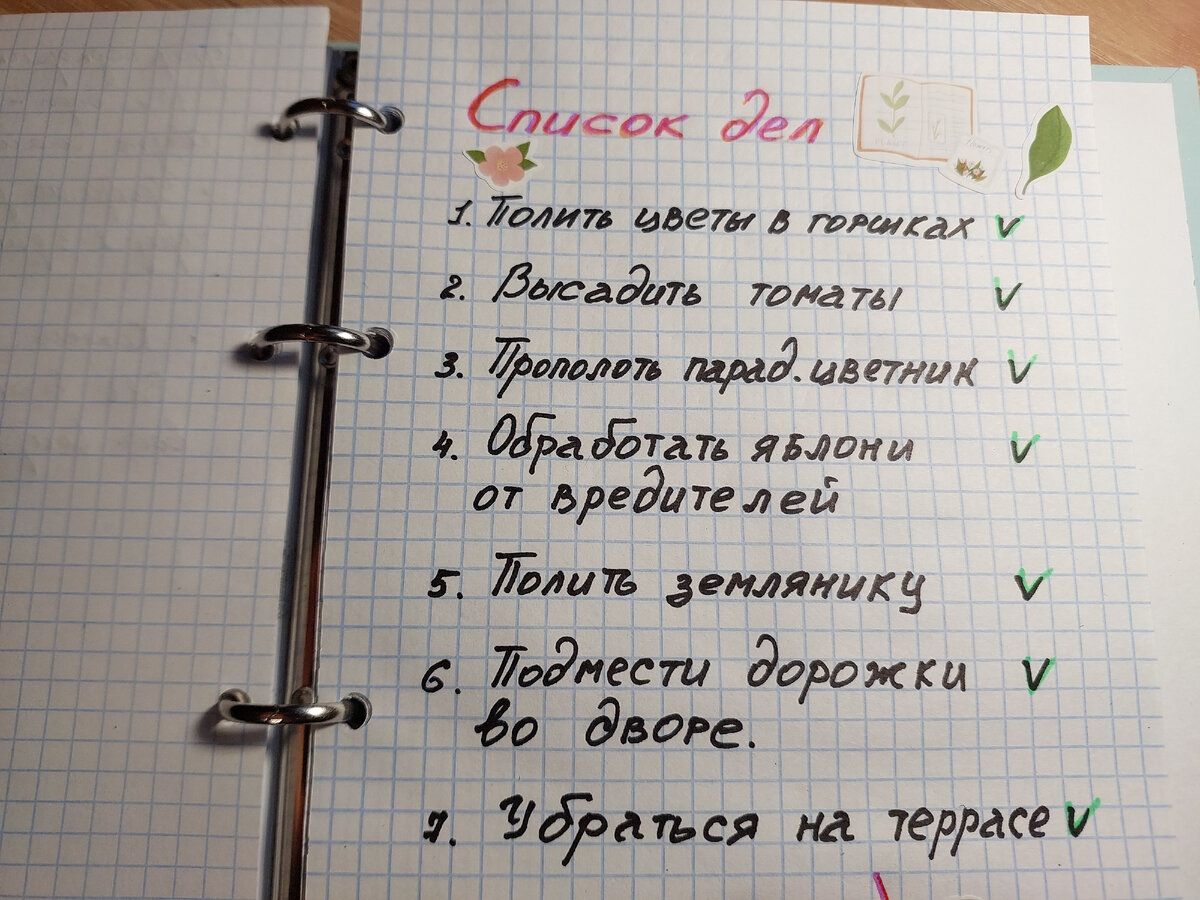 Список дел
1. Полить цветы в горшках V
2. Высадить томаты V
3. Прополоть парад. цветник V
4. Обработать яблони V
от вредителей
5. Полить землянику V
6. Подмести дорожки V
во дворе.
7. Убраться на террасе V